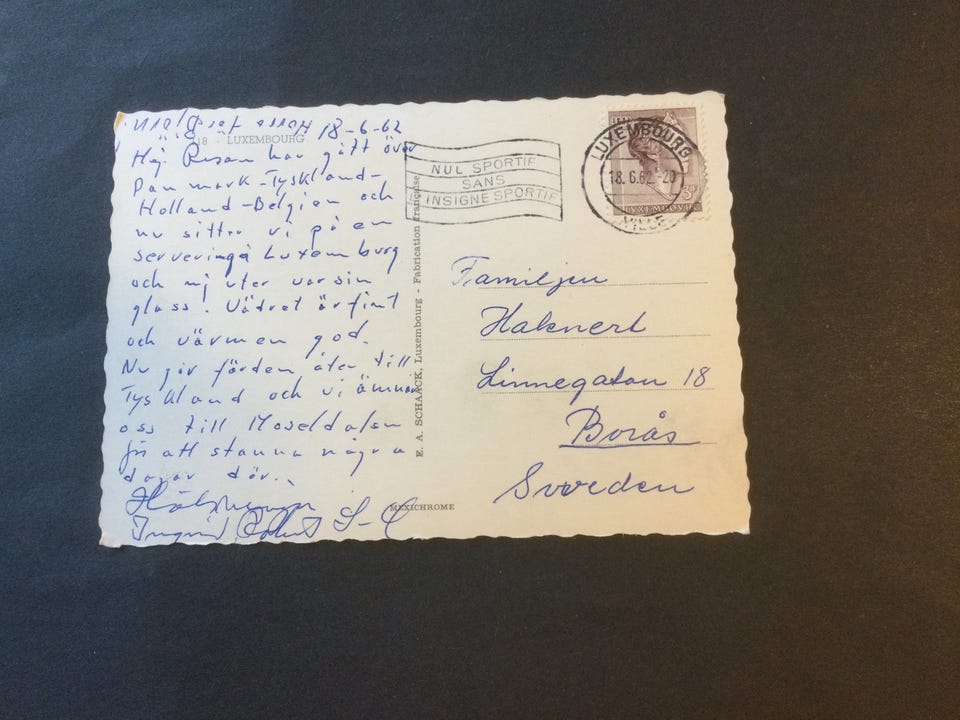 18-6-62
18 LUXEMBOURG
Hej. Resan har gått över
Danmark-Tyskland-
Holland-Belgien och
nu sitter vi på en
servering å Luxemburg
och njuter var sin
glass. Vädret är fint
och värmen god.
Nu går färden åter till
Tyskland och vi ämnar
oss till Moseldalen
för att stanna några
dagar där.
Hälsningar
Ingrid
E. A. SCHAACK, Luxembourg - Fabrication française
MEXICHROME
NUL SPORTIF
SANS
INSIGNE SPORTIF
LUXEMBOURG
18.6.62-20
VILLE
3F
LUXEMBOURG
Familjen
Haknert
Linnegatan 18
Borås
Sweden